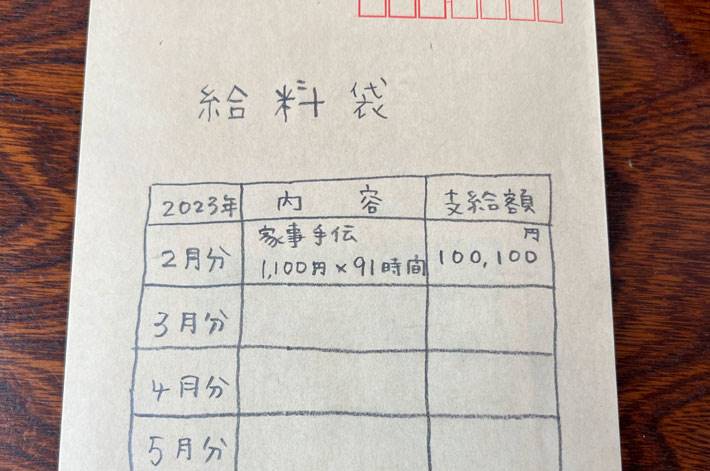 給料袋
2023年 内容 支給額
2月分 家事手伝 円
1,100円×91時間 100,100
3月分
4月分
5月分